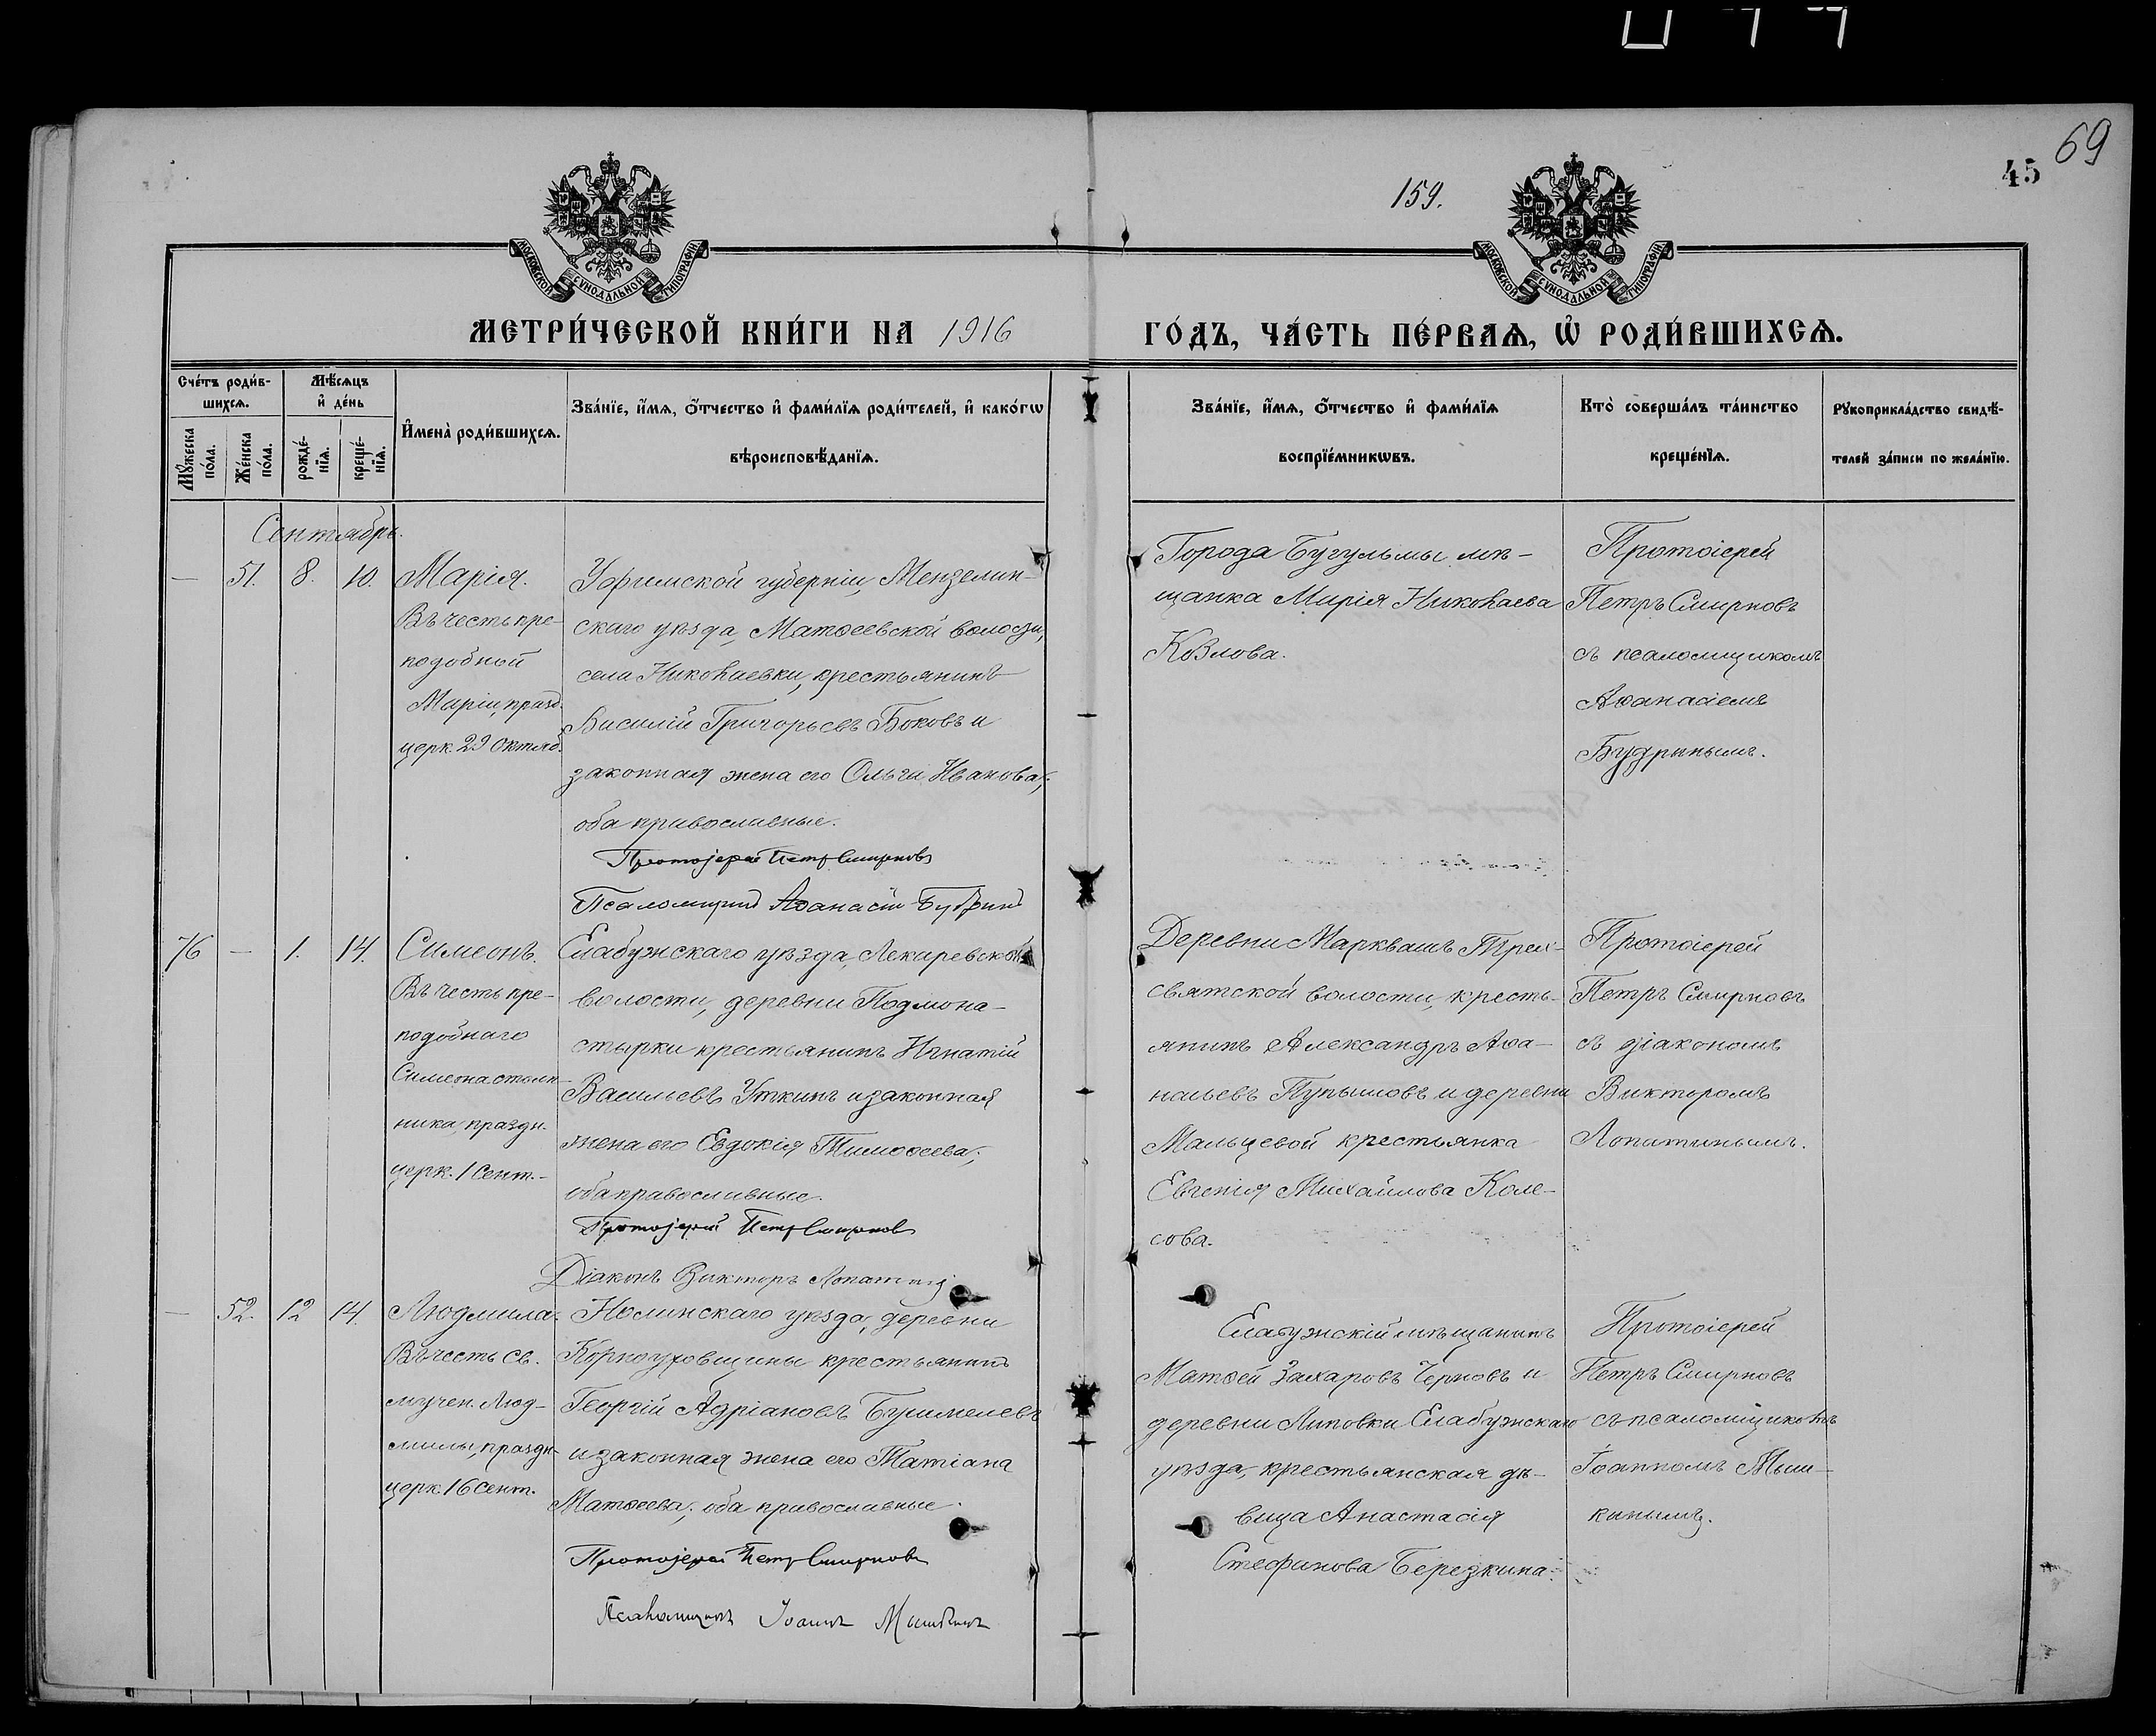 69
45
159.
МОСКОВСКОЙ СѴНОДАЛЬНОЙ ТИПОГРАФІИ
МОСКОВСКОЙ СѴНОДАЛЬНОЙ ТИПОГРАФІИ
МЕТРИ́ЧЕСКОЙ КНИ́ГИ НА 1916
ГО́ДЪ, ЧА́СТЬ ПЕ́РВАѦ, Ѡ҆ РОДИ́ВШИХСѦ.
Сче́тъ роди́в-
шихсѧ.
Мꙋ́жеска
по́ла.
Же́нска
по́ла.
Мѣ́сѧцъ
и҆ де́нь
рожде́-
нїѧ.
креще́-
нїѧ.
И҆мена̀ роди́вшихсѧ.
Зва́нїе, и҆́мѧ, ѻ҆́тчество и҆ фами́лїѧ роди́телей, и҆ како́гѡ
вѣроисповѣ́данїѧ.
Зва́нїе, и҆́мѧ, ѻ҆́тчество и҆ фами́лїѧ
воспрїе́мникѡвъ.
Кто̀ соверша́лъ та́инство
креще́нїѧ.
Рꙋкоприкла́дство свидѣ́-
телей за́писи по жела́нїю.
Сентябрь.
— 51. 8. 10.
Марія.
Въ честь пре-
подобной
Маріи, празд.
церк. 29 Октяб.
Уфимской губерніи, Мензелин-
скаго уѣзда, Матѳеевской волости,
села Николаевки, крестьянинъ
Василій Григорьевъ Боковъ и
законная жена его Ольга Иванова,
оба православные.
Протоіерей Петръ Смирновъ
Псаломщикъ Аѳанасій Будринъ
Города Бугульмы мѣ-
щанка Марія Николаева
Козлова.
Протоіерей
Петръ Смирновъ
съ псаломщикомъ
Аѳанасіемъ
Будринымъ.
76 — 1. 14.
Симеонъ.
Въ честь пре-
подобнаго
Симеона столп-
ника, праздн.
церк. 1 Сент.-
Елабужскаго уѣзда, Лекаревской
волости, деревни Подмона-
стырки крестьянинъ Игнатій
Васильевъ Уткинъ и законная
жена его Евдокія Тимоѳеева;
оба православные.
Протоіерей Петръ Смирновъ
Діаконъ Викторъ Лопатинъ
Деревни Марквашъ Трех-
святской волости, кресть-
янинъ Александръ Аѳа-
насьевъ Пупышовъ и деревни
Мальцевой крестьянка
Евгенія Михайлова Коле-
сова.
Протоіерей
Петръ Смирновъ
съ діакономъ
Викторомъ
Лопатинымъ.
— 52. 12 14.
Людмила.
Въ честь св.
мучен. Люд-
милы, праздн.
церк. 16 Сент.
Нолинскаго уѣзда, деревни
Корноуховщины крестьянинъ
Георгій Адріановъ
и законная жена его Татіана
Матѳеева; оба православные.
Протоіерей Петръ Смирновъ
Псаломщикъ Іоаннъ Мышкинъ
Елабужскій мѣщанинъ
Матѳей Захаровъ Черновъ и
деревни Липовки Елабужскаго
уѣзда, крестьянская дѣ-
вица Анастасія
Стефанова Березкина.
Протоіерей
Петръ Смирновъ
съ псаломщикомъ
Іоанномъ Мыш-
кинымъ.